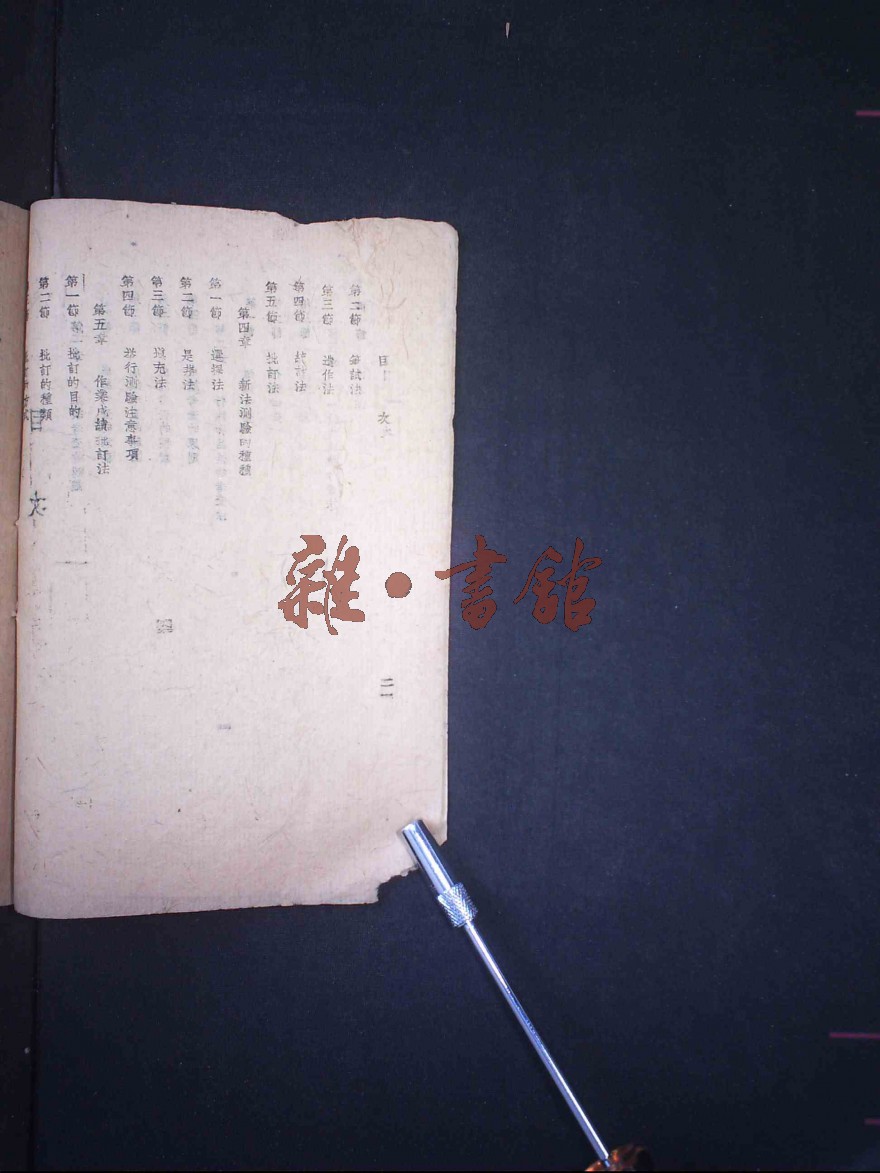 目次
第二節 筆試法
第三節 造作法
第四節 校訂法
第五節 批訂法
第四章 新法測驗的種類
第一節 選擇法
第二節 是非法
第三節 填充法
第四節 舉行測驗注意事項
第五章 作業成績批訂法
第一節 批訂的目的
第二節 批訂的種類
雜·書館